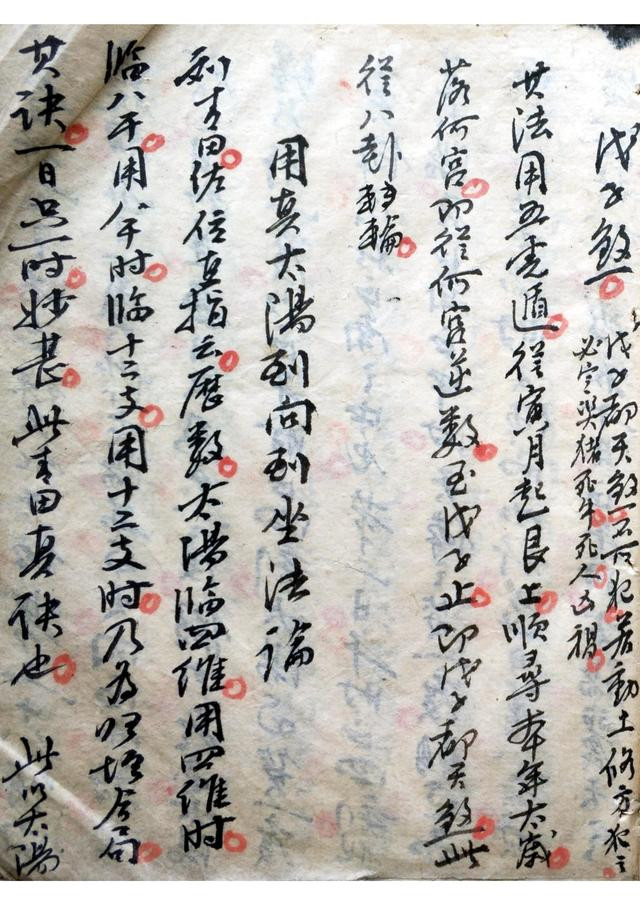 戊子煞
戊子都天煞不可犯若動土修方犯之
必定哭猪死牛死人凶禍
其法用五虎遁從寅月起艮上順尋本年太歲
落何宮即從何宮逆數至戊子止即戊子都天煞此
從八卦轉輪
用真太陽到向到坐法論
刘青田佐位直指云歷數太陽臨四維用四維时
臨八干用八干时臨十二支用十二支时乃為歸垣合局
其訣一日只一时妙甚此青田真訣也 此以太陽